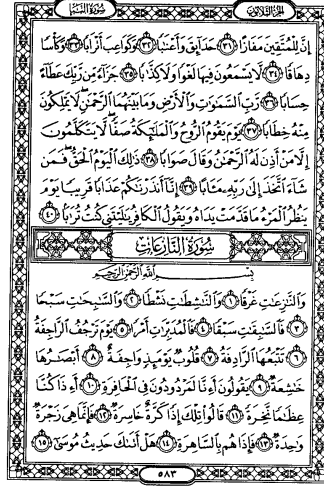 سُورَةُ النَّبَإِ الجُزْءُ الثَّلَاثُونَ
إِنَّ لِلْمُتَّقِينَ مَفَازًا ﴿٣١﴾ حَدَآئِقَ وَأَعْنَٰبًا ﴿٣٢﴾ وَكَوَاعِبَ أَتْرَابًا ﴿٣٣﴾ وَكَأْسًا
دِهَاقًا ﴿٣٤﴾ لَّا يَسْمَعُونَ فِيهَا لَغْوًا وَلَا كِذَّٰبًا ﴿٣٥﴾ جَزَآءً مِّن رَّبِّكَ عَطَآءً
حِسَابًا ﴿٣٦﴾ رَّبِّ ٱلسَّمَٰوَٰتِ وَٱلْأَرْضِ وَمَا بَيْنَهُمَا ٱلرَّحْمَٰنِ لَا يَمْلِكُونَ
مِنْهُ خِطَابًا ﴿٣٧﴾ يَوْمَ يَقُومُ ٱلرُّوحُ وَٱلْمَلَٰٓئِكَةُ صَفًّا لَّا يَتَكَلَّمُونَ
إِلَّا مَنْ أَذِنَ لَهُ ٱلرَّحْمَٰنُ وَقَالَ صَوَابًا ﴿٣٨﴾ ذَٰلِكَ ٱلْيَوْمُ ٱلْحَقُّ فَمَن
شَآءَ ٱتَّخَذَ إِلَىٰ رَبِّهِۦ مَـَٔابًا ﴿٣٩﴾ إِنَّآ أَنذَرْنَٰكُمْ عَذَابًا قَرِيبًا يَوْمَ
يَنظُرُ ٱلْمَرْءُ مَا قَدَّمَتْ يَدَاهُ وَيَقُولُ ٱلْكَافِرُ يَٰلَيْتَنِى كُنتُ تُرَٰبًۢا ﴿٤٠﴾
سُورَةُ النَّازِعَاتِ
بِسْمِ ٱللَّهِ ٱلرَّحْمَٰنِ ٱلرَّحِيمِ
وَٱلنَّٰزِعَٰتِ غَرْقًا ﴿١﴾ وَٱلنَّٰشِطَٰتِ نَشْطًا ﴿٢﴾ وَٱلسَّٰبِحَٰتِ سَبْحًا
﴿٣﴾ فَٱلسَّٰبِقَٰتِ سَبْقًا ﴿٤﴾ فَٱلْمُدَبِّرَٰتِ أَمْرًا ﴿٥﴾ يَوْمَ تَرْجُفُ ٱلرَّاجِفَةُ
﴿٦﴾ تَتْبَعُهَا ٱلرَّادِفَةُ ﴿٧﴾ قُلُوبٌ يَوْمَئِذٍ وَاجِفَةٌ ﴿٨﴾ أَبْصَٰرُهَا
خَٰشِعَةٌ ﴿٩﴾ يَقُولُونَ أَءِنَّا لَمَرْدُودُونَ فِى ٱلْحَافِرَةِ ﴿١٠﴾ أَءِذَا كُنَّا
عِظَٰمًا نَّخِرَةً ﴿١١﴾ قَالُوا۟ تِلْكَ إِذًا كَرَّةٌ خَاسِرَةٌ ﴿١٢﴾ فَإِنَّمَا هِىَ زَجْرَةٌ
وَٰحِدَةٌ ﴿١٣﴾ فَإِذَا هُم بِٱلسَّاهِرَةِ ﴿١٤﴾ هَلْ أَتَىٰكَ حَدِيثُ مُوسَىٰٓ ﴿١٥﴾
٥٨٣